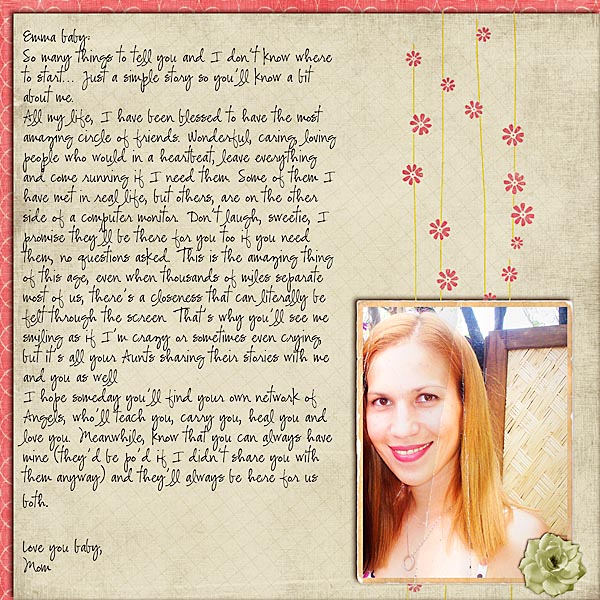 Emma baby:
So many things to tell you and I don't know where
to start... Just a simple story so you'll know a bit
about me.
All my life, I have been blessed to have the most
amazing circle of friends. Wonderful, caring, loving
people who would in a heartbeat, leave everything
and come running if I need them. Some of them I
have met in real life, but others, are on the other
side of a computer monitor. Don't laugh, sweetie, I
promise they'll be there for you too if you need
them, no questions asked. This is the amazing thing
of this age, even when thousands of miles separate
most of us, there's a closeness that can literally be
felt through the screen. That's why you'll see me
smiling as if I'm crazy or sometimes even crying,
but it's all your Aunts sharing their stories with me
and you as well
I hope someday you'll find your own network of
Angels, who'll teach you, carry you, heal you and
love you. Meanwhile, know that you can always have
mine (they'd be po'd if I didn't share you with
them anyway) and they'll always be here for us
both.
Love you baby,
Mom